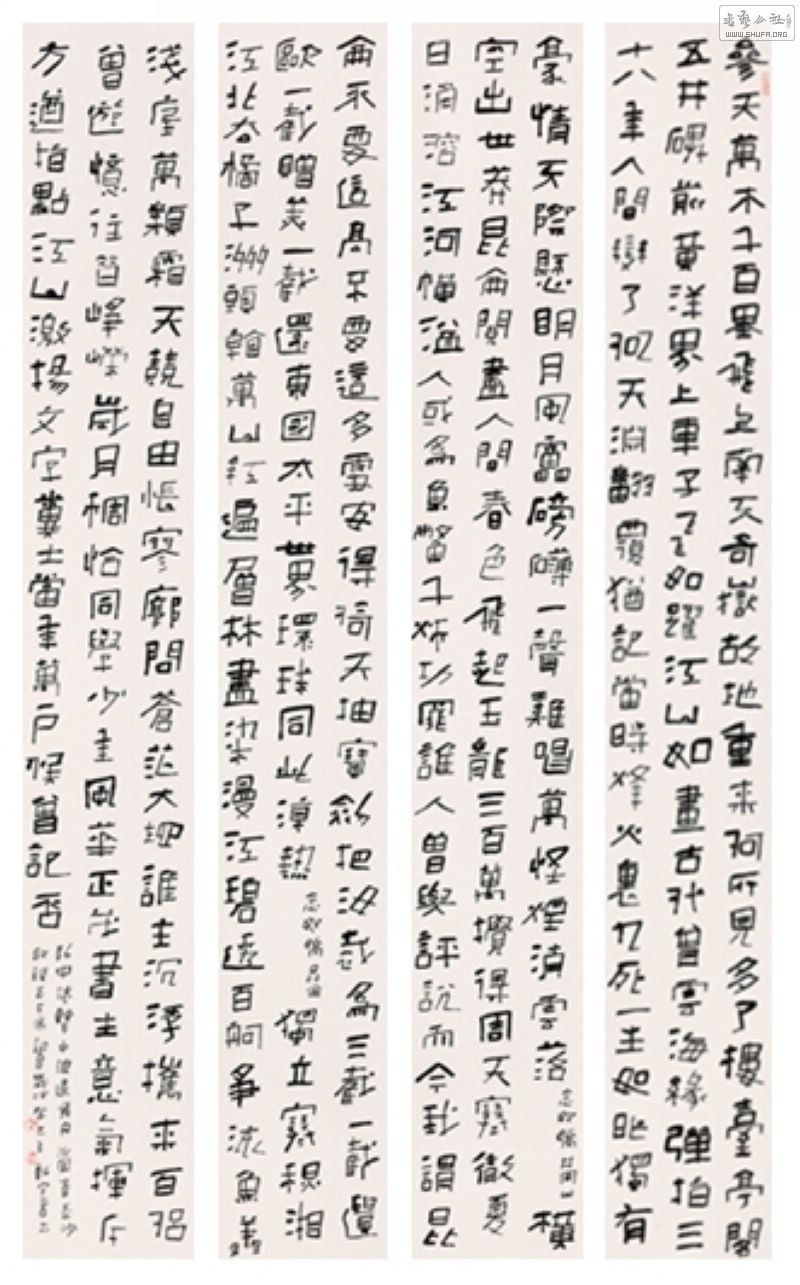 書藝公社
WWW.SHUFA.ORG
參天萬木千百里飛上南天奇嶽故地重來何所見多了擾臺亭閣
五井碑前黃洋界上車子飞如躍江山如畫古代曾雲海綠彈指三
十八年人間變了似天淵翻覆猶記當時烽火裏九死一生如昨獨有
豪情天際懸明月風雷磅礴一聲雞唱萬怪煙消雲落 念奴嬌井岡山 橫
空出世莽昆侖閱盡人間春色飛起玉龍三百萬攪得周天寒徹夏
日消溶江河橫溢人或爲魚鱉千秋功罪誰人曾與評說而今我謂昆
侖不要這高不要這多雪安得倚天抽寶劍把汝裁爲三截一截遺
歐一截贈美一截還東國太平世界環球同此涼熱 念奴嬌昆侖 獨立寒秋湘
江北去橘子洲頭看萬山紅遍層林盡染漫江碧透百舸爭流魚翔
淺底萬類霜天競自由悵寥廓問蒼茫大地誰主沉浮攜來百侶
曾遊憶往昔崢嶸歲月稠恰同學少年風華正茂書生意氣揮斥
方遒指點江山激揚文字糞土當年萬戶侯曾記否